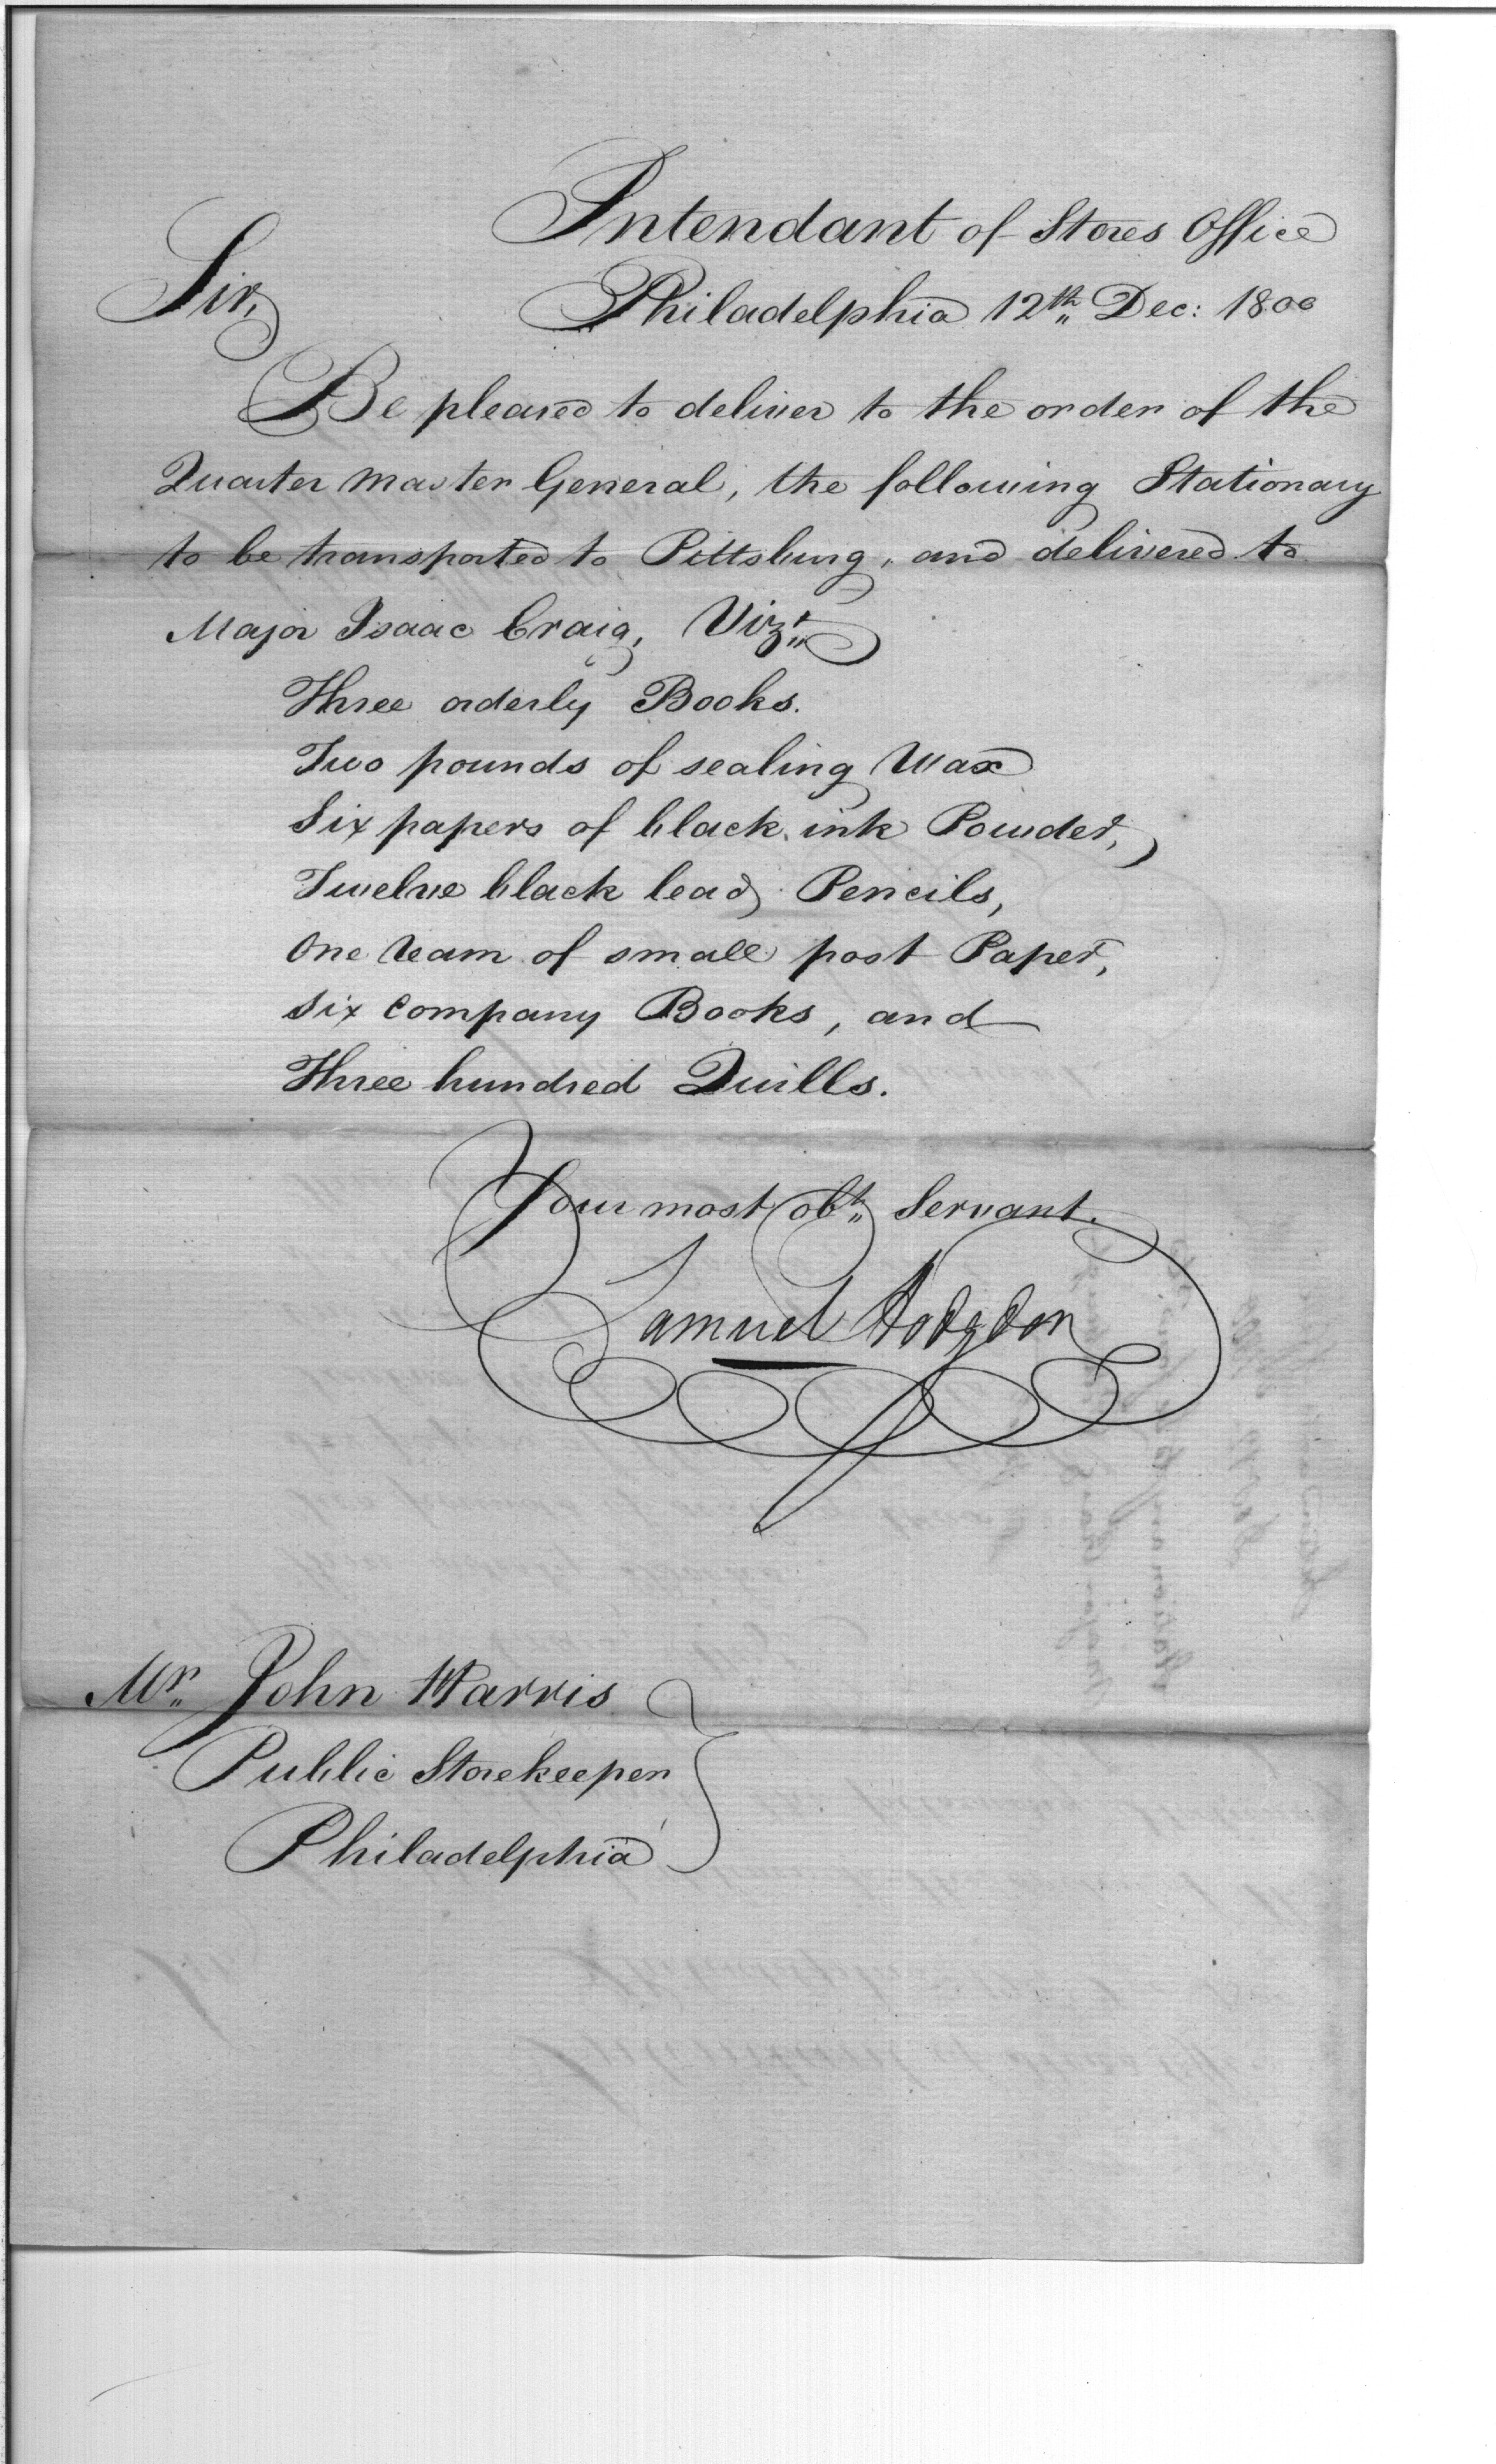 Intendant of Stores Office
Sir,
Philadelphia 12th Dec: 1800
Be pleased to deliver to the order of the
Quarter Master General, the following Stationary
to be transported to Pittsburg, and delivered to
Major Isaac Craig, Vizt
Three orderly Books.
Two pounds of sealing Wax
Six papers of black ink Powder,
Twelve black lead Pencils,
One ream of small post Paper,
Six Company Books, and
Three hundred Quills.
Your most obt Servant.
Samuel Hodgdon
Mr John Harris
Public Storekeeper
Philadelphia